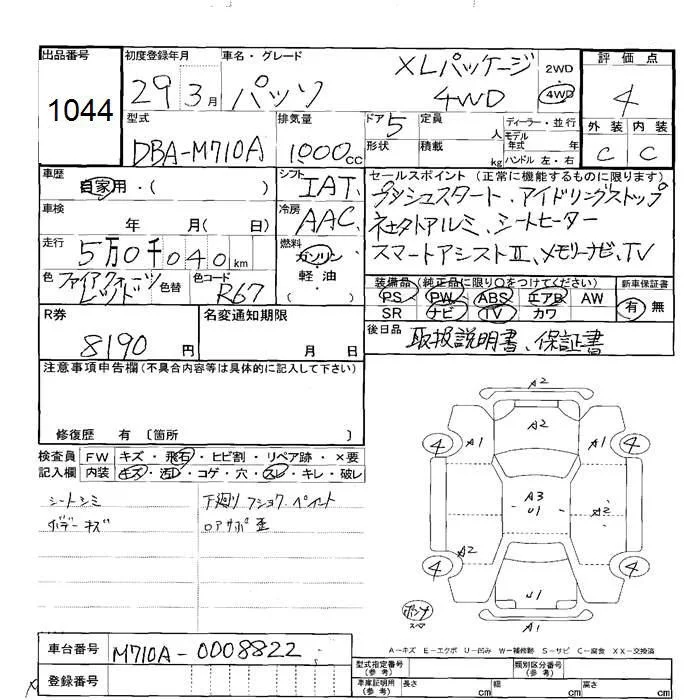 出品番号 1044
初度登録年月 29 3月
車名・グレード パッソ XLパッケージ 4WD
2WD
4WD
評価点 4
外装 内装
C C
型式 DBA-M710A
排気量 1000cc
ドア 5
形状
定員 人
積載 kg
ディーラー・並行
モデル
年式 年
ハンドル 左・右
車歴 自家用・( )
シフト IAT
車検 年 月( 日)
冷房 AAC
走行 5万0千040km
燃料 ガソリン
軽・油
( )
色 ファイアクォーツ
レッド
色替
色コード R67
セールスポイント(正常に機能するものに限ります)
プッシュスタート、アイドリングストップ
シートヒーター
スマートアシストII、メモリーナビ、TV
装備品(純正品に限り○をつけてください)
PS PW ABS エアB AW
SR ナビ TV カワ
新車保証書
有 無
後日品 取扱説明書、保証書
R券 8190円
名変通知期限
月 日
注意事項申告欄(不具合内容等は具体的に記入して下さい)
修復歴 有 〔箇所 〕
検査員 FW キズ・飛石・ヒビ割・リペア跡・×要
記入欄 内装 キズ・汚レ・コゲ・穴・スレ・キレ・破レ
シートシミ
ボデーキズ
下廻り フショク、ペイント
ロアサポ 歪
A2
4 A1 A2 A1 4
A3
U1
A2
A2
4 U1 4
A1
A-キズ E-エクボ U-凹み W-補修跡 S-サビ C-腐食 XX-交換済
車台番号 M710A-0008822
登録番号
型式指定番号
(参考)
類別区分番号
(参考)
車庫証明用
(参考)
長さ cm 幅 cm 高さ cm